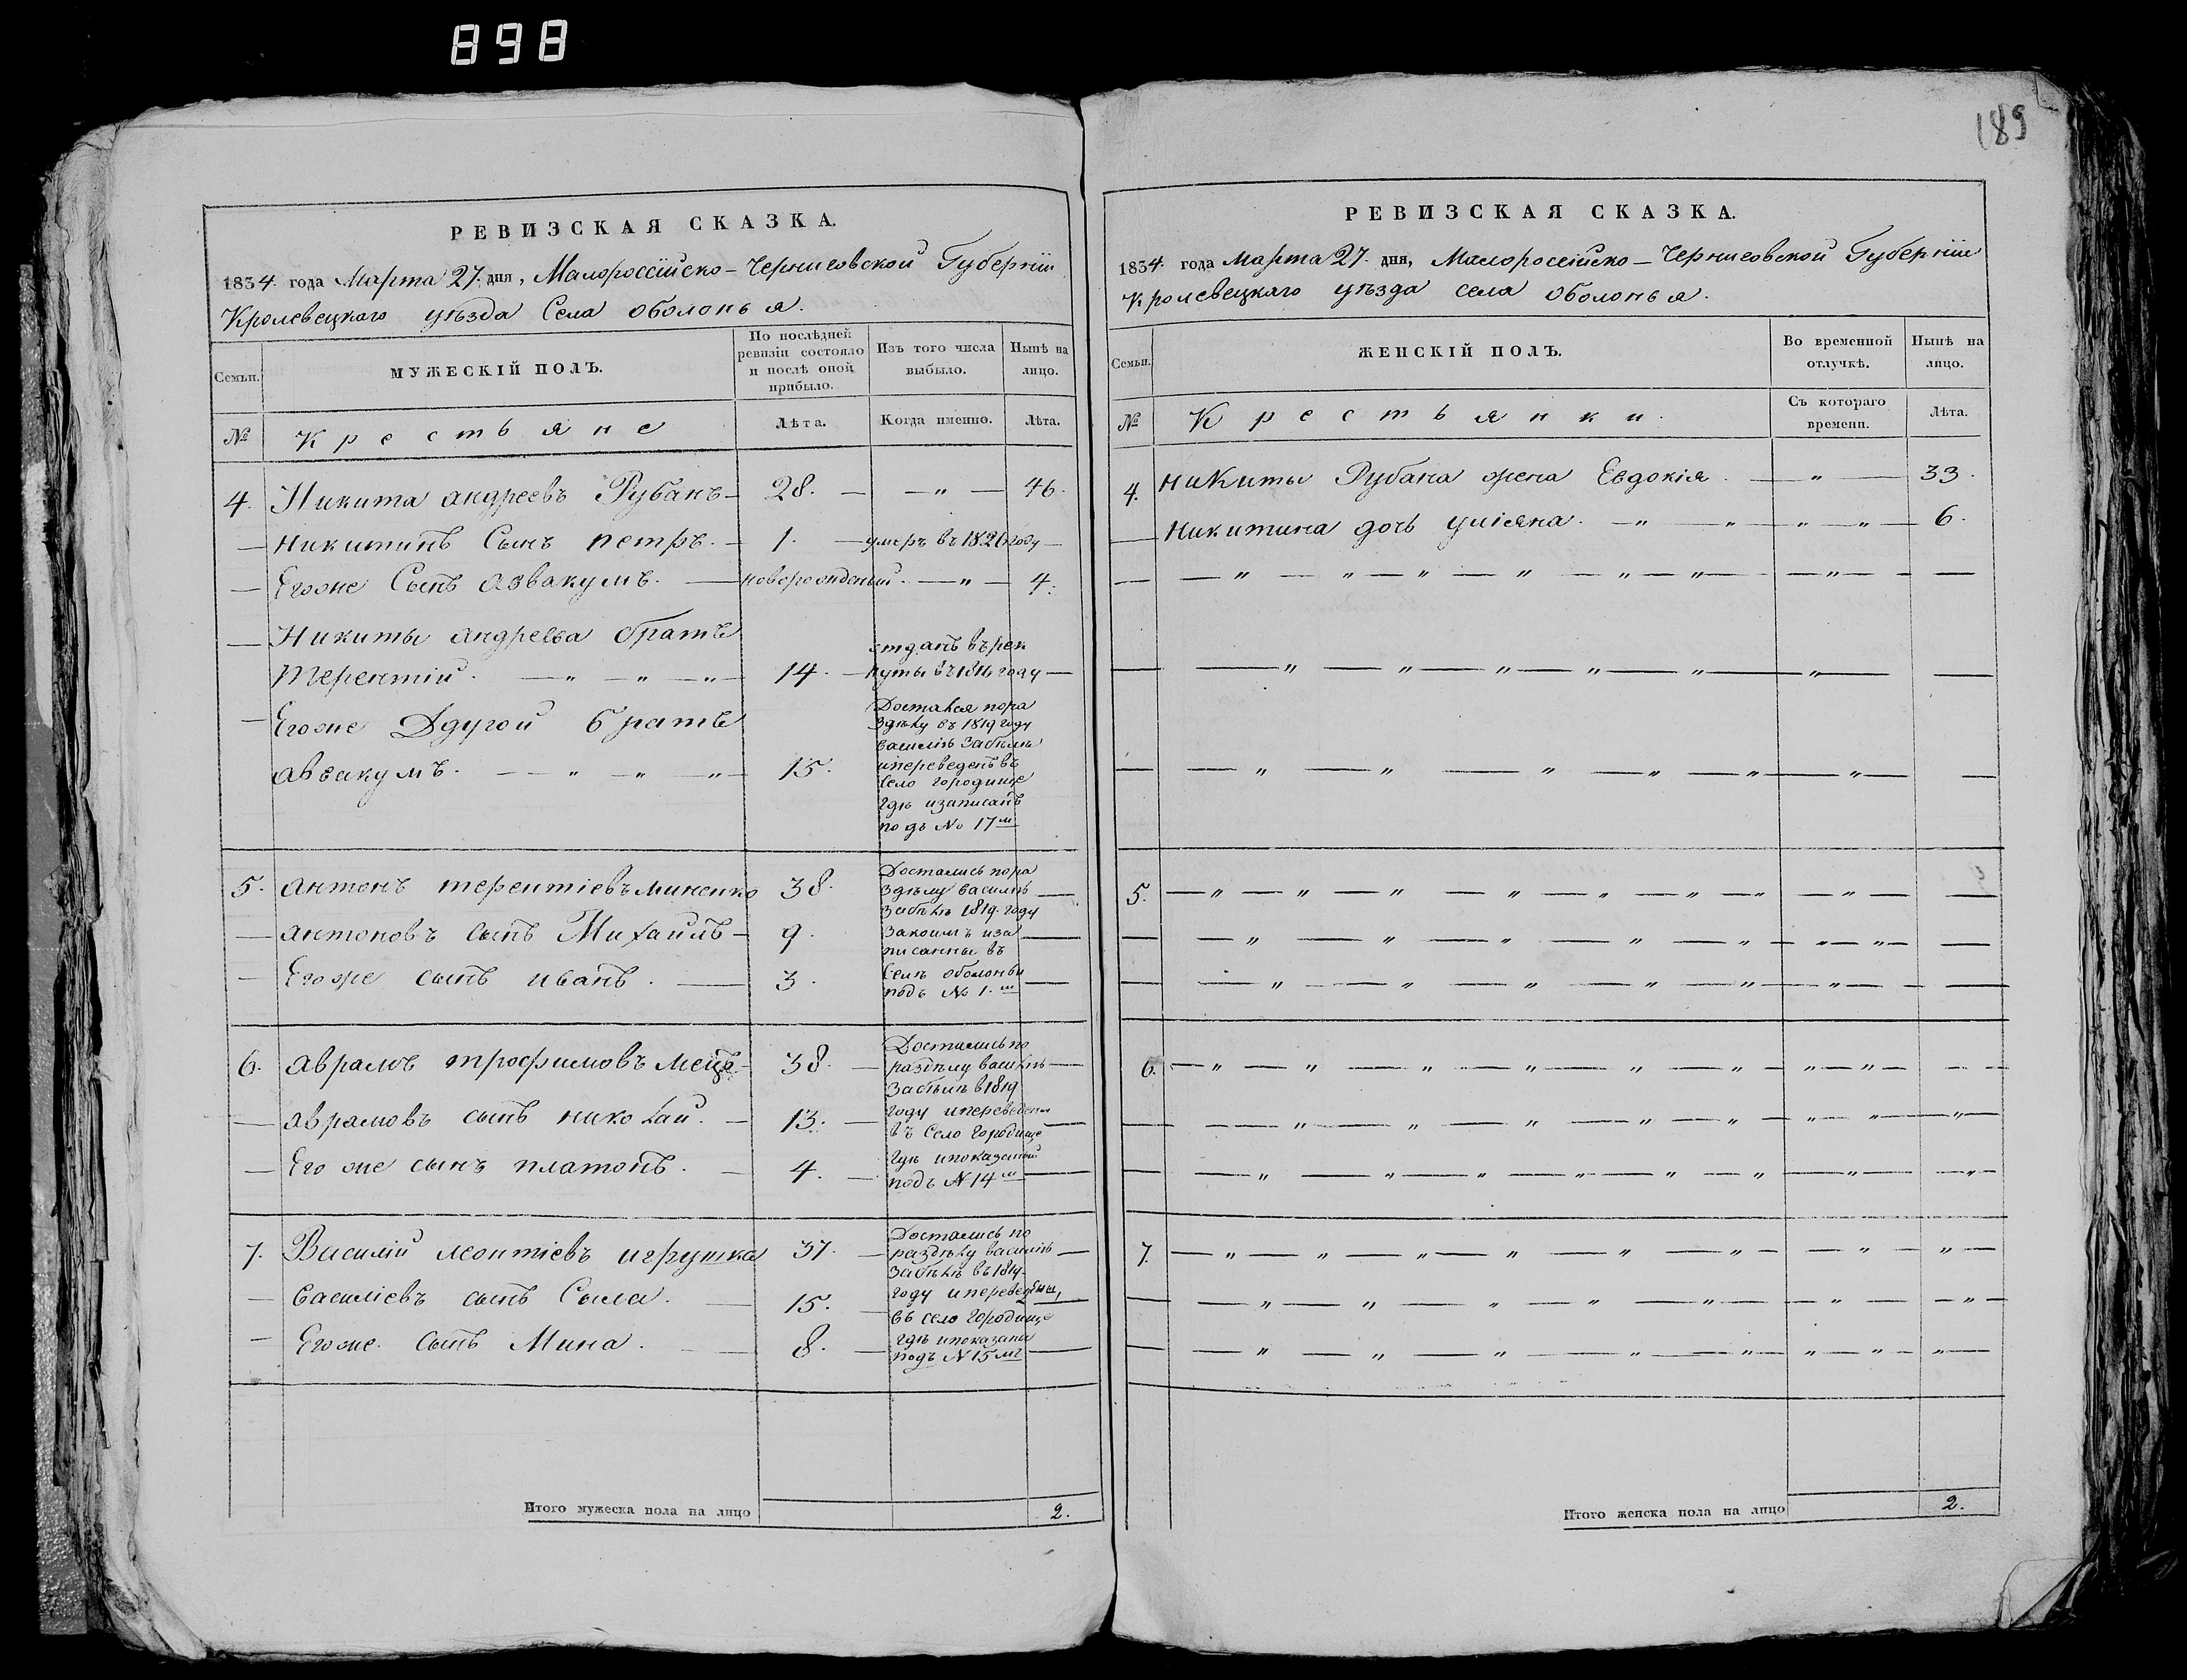 898
189
РЕВИЗСКАЯ СКАЗКА.
1834. года Марта 27. дня, Малороссійско-Черниговской Губерніи
Кролевецкаго уѣзда Села оболонья.
Семьи.
МУЖЕСКІЙ ПОЛЪ.
По послѣдней ревизіи состояло и послѣ оной прибыло.
Изъ того числа выбыло.
Нынѣ на лицо.
№
Крестьяне
Лѣта.
Когда именно.
Лѣта.
4. Никита андреевъ Рубанъ — 28. — — „ — 46.
— Никитинъ Сынъ петръ. — 1. — умеръ въ 1826 году —
— Егоже Сынъ авакумъ. — новорожденый. — „ — 4.
— Никиты андреева братъ
Терентій. — „ — „ — „ — 14. —
отданъ въ рек
руты въ 1816 году —
— Егоже Ддугой братъ
авакумъ. — — „ — „ — „ — 15.
Достался пора
здѣлу въ 1819 году
василію Забѣлѣ
ипереведенъ въ
село городище
гдѣ изаписанъ
подъ No 17м
5. антонъ терентіевъ миненко 38.
— антоновъ сынъ Михаилъ — 9.
— Егоже сынъ иванъ. — 3.
Достались пора
здѣлу василію —
забѣлѣ 1819. году
закоимъ иза —
писанны въ
селѣ оболоньи
подъ No 1.м —
6. аврамъ трофимовъ — 38. —
— аврамовъ сынъ николай. — 13. —
— Его же сынъ платонъ. — 4. —
Достались по
раздѣлу василію —
Забѣлѣ в 1819
году ипереведены
въ Село городище
гдѣ ипоказаный
подъ N 14м —
7. Василій леонтіевъ игрушка 37. —
— василіевъ сынъ Сыла. — 15. —
— Егоже. сынъ Мина. — 8. —
Достались по
раздѣлу василію —
забѣлѣ въ 1819.
году ипереведены,
въ село городище
гдѣ ипоказана
подъ N 15мъ —
Итого мужеска пола на лицо 2.
РЕВИЗСКАЯ СКАЗКА.
1834. года Марта 27. дня, Малороссійско-Черниговской Губерніи
Кролевецкаго уѣзда села оболонья.
Семьи.
ЖЕНСКІЙ ПОЛЪ.
Во временной отлучкѣ.
Нынѣ на лицо.
№
Крестьянки.
Съ котораго времени.
Лѣта.
4. никиты Рубана жена Евдокія. — „ — 33.
— Никитина дочь уліяна. — „ — „ — „ — „ — 6.
5.
6.
7.
Итого женска пола на лицо 2.